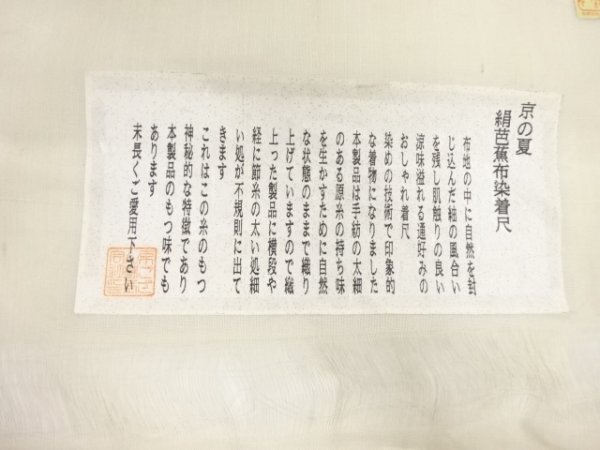 京の夏
絹芭蕉布染着尺
布地の中に自然を封
じ込んだ紬の風合い
を残し肌触りの良い
涼味溢れる通好みの
おしゃれ着尺
染めの技術で印象的
な着物になりました
本製品は手紡の太細
のある原糸の持ち味
を生かすために自然
な状態のままで織り
上げていますので織
上った製品に横段や
経に節糸の太い処細
い処が不規則に出て
きます
これはこの糸のもつ
神秘的な特徴であり
本製品のもつ味でも
あります
末長くご愛用下さい